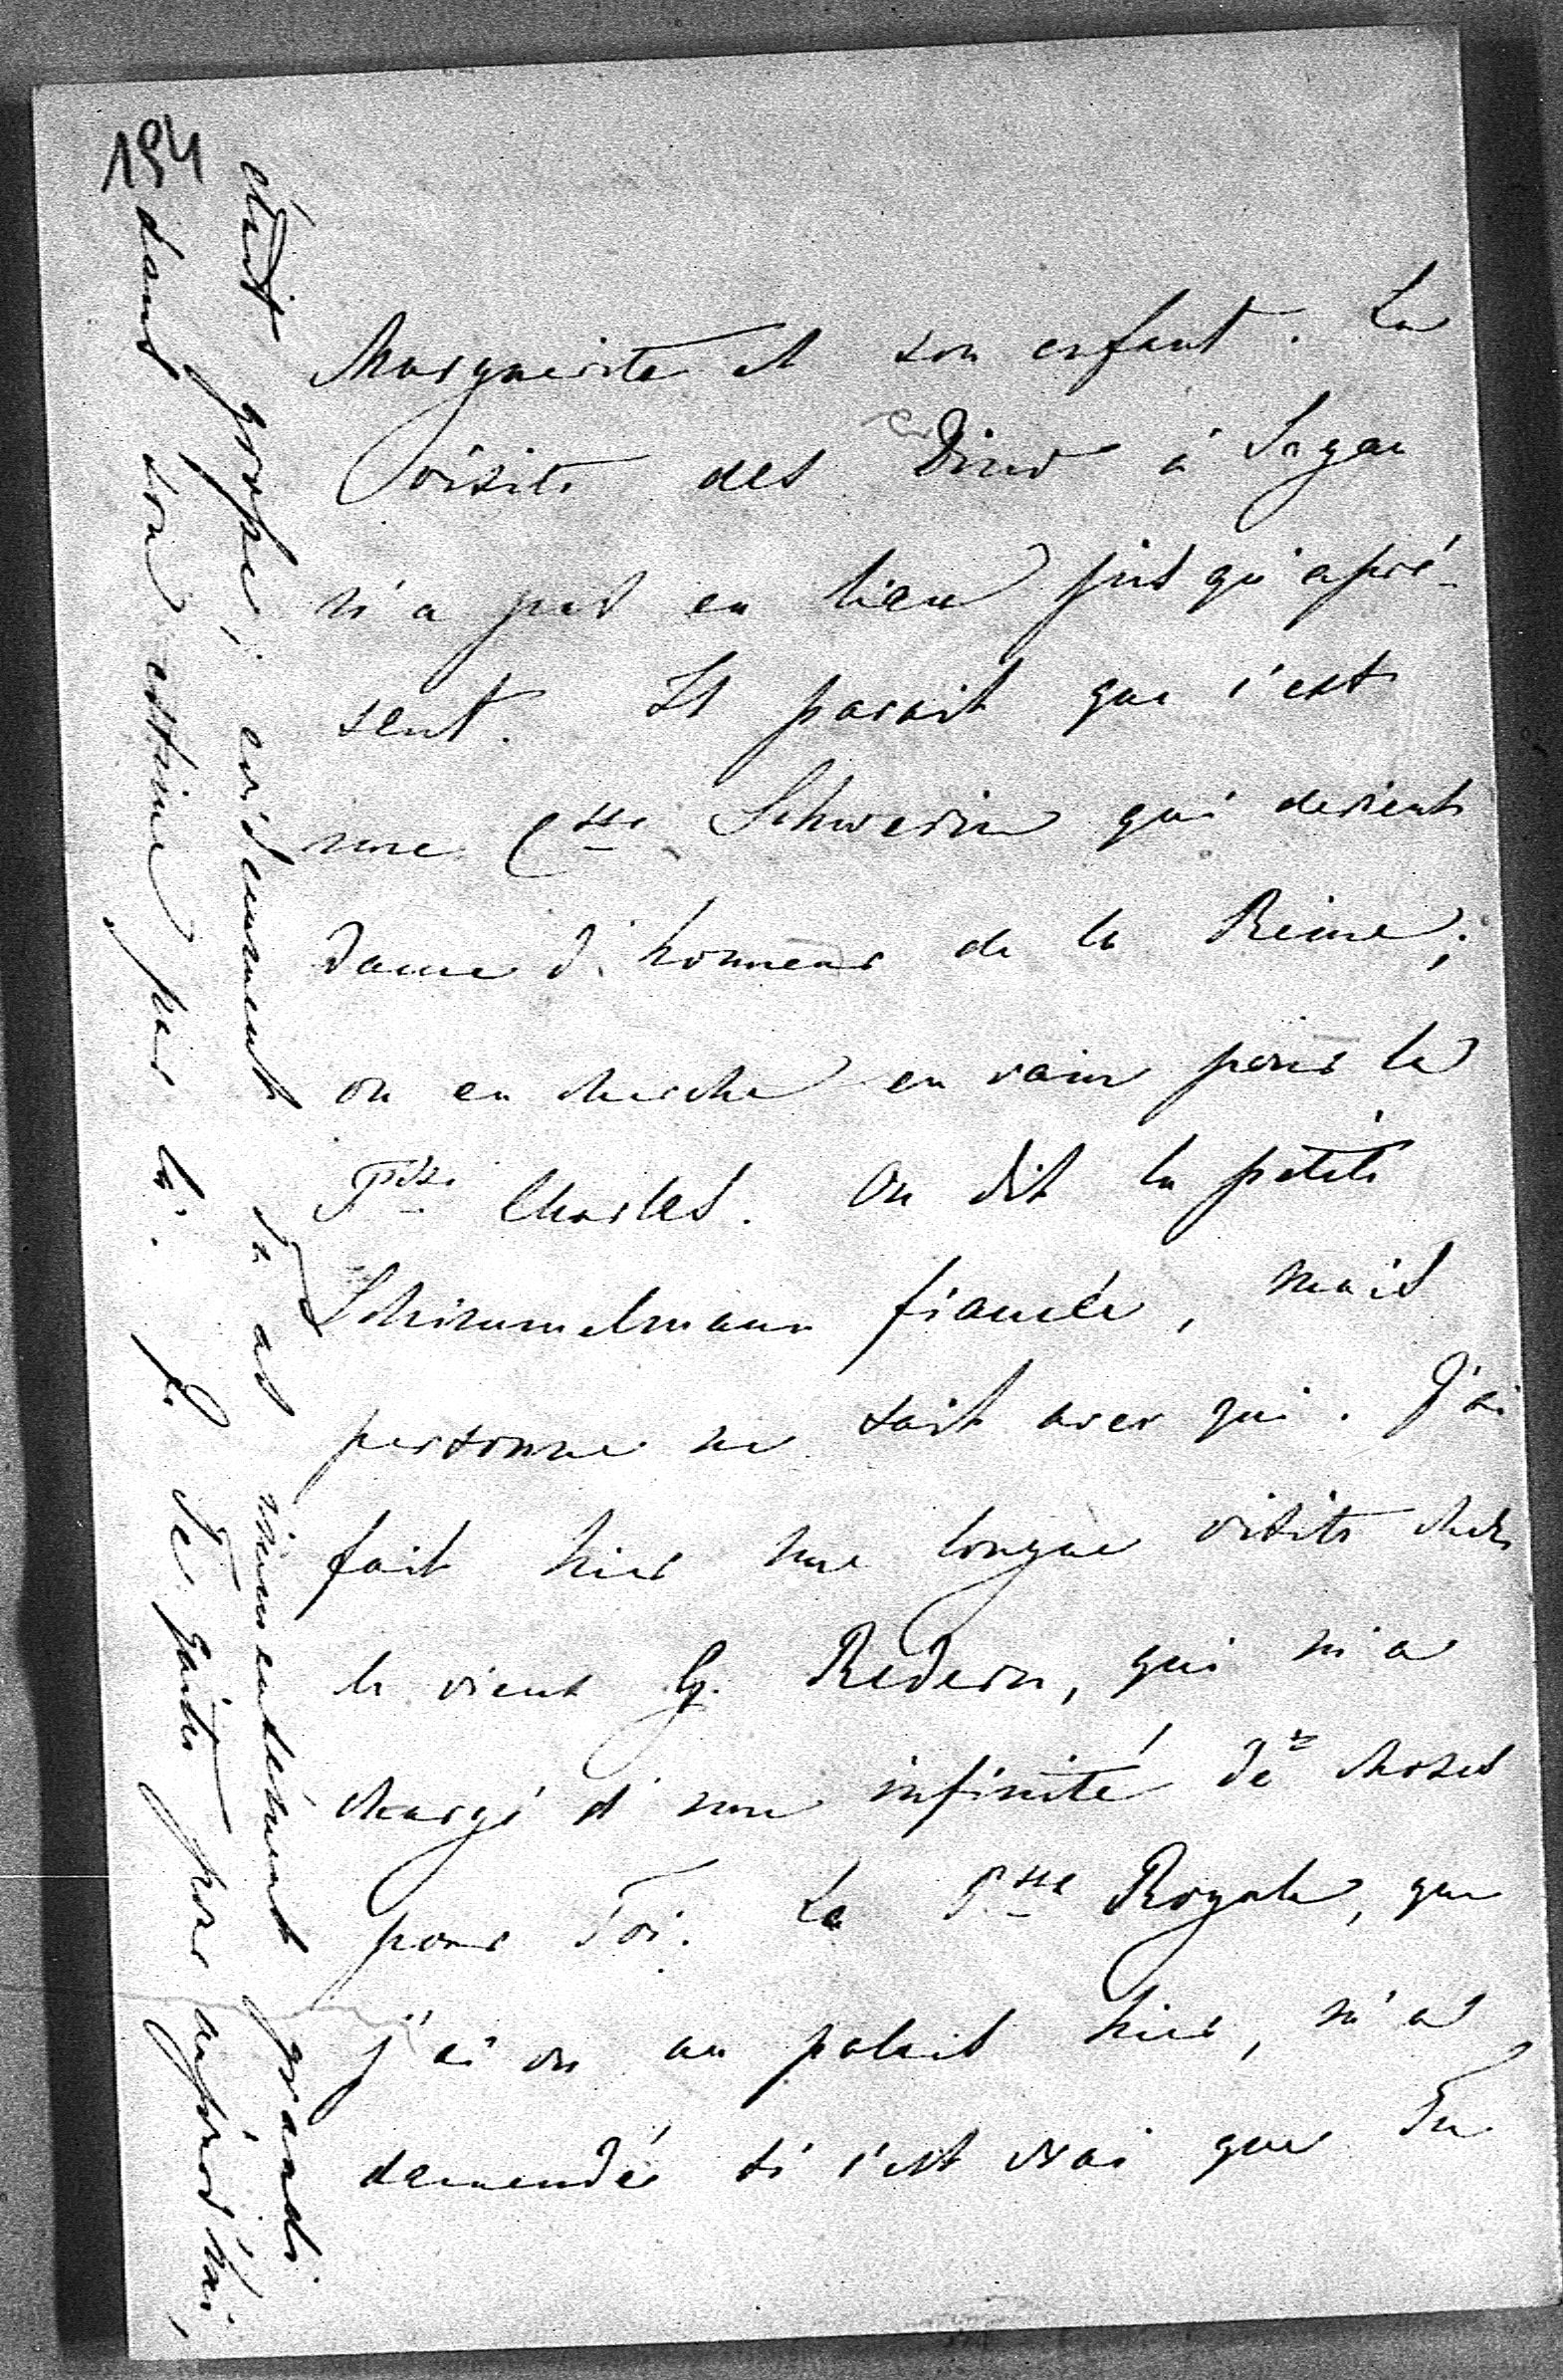 194
Marguerite et son enfant. La
visite des Dino à Sagan
n'a pas eu lieu jusqu'apré-
sent. Il parait que c'est
une Csse Schwerin qui devient
Dame d'honneur de la Reine;
on en cherche en vain pour la
Psse Charles. On dit la petite
Schimmelmann fiancée, mais
personne ne sait avec qui. J'ai
fait hier une longue visite chez
le vieux G. Redern, qui m'a
chargé d'une infinité de choses
pour Toi. La Psse Royale, que
j'ai vu au palais hier, m'a
demandée si c'est vrai que Tu
étant, évidemment Tu as grandi
dans son estime par là. Je Te quitte pour aujourd'hui,